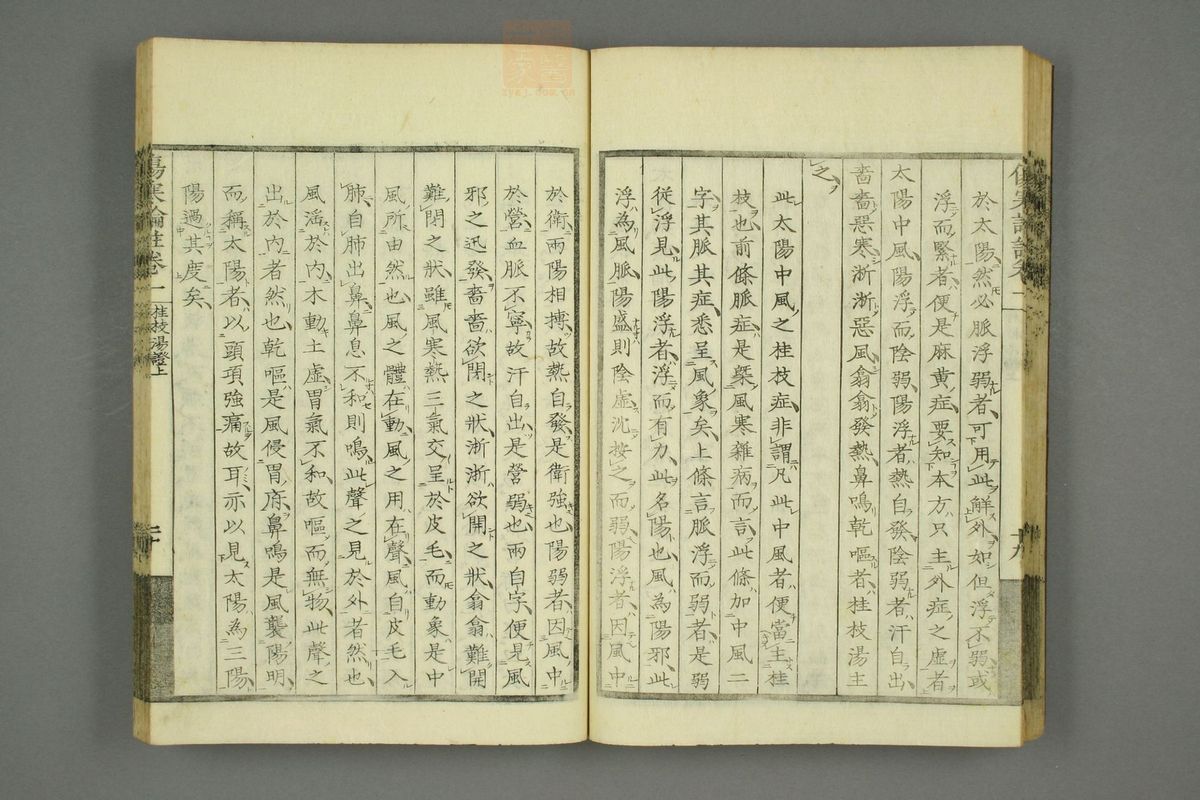 於太陽然必脈浮弱者可用此解外如但浮不弱或
浮而緊者便是麻黄症要知本方只主外症之虛者
太陽中風陽浮而陰弱陽浮者熱自發陰弱者汗自出
嗇嗇惡寒淅淅惡風翕翕發熱鼻鳴乾嘔者桂枝湯主
之
此太陽中風之桂枝症非謂凡此中風者便當主桂
枝也前條脈症是槩風寒雜病而言此條加中風二
字其脈其症悉呈風象矣上條言脈浮而弱者是弱
從浮見此陽浮者浮而有力此名陽也風為陽邪此
浮為風脈陽盛則陰虛沈按之而弱陽浮者因風中
於衛兩陽相搏故熱自發是衛強也陽弱者因風中
於營血脈不寧故汗自出是營弱也兩自字便見風
邪之迅發嗇嗇欲閉之狀淅淅欲開之狀翕翕難開
難閉之狀雖風寒熱三氣交呈於皮毛而動象是中
風所由然也風之體在動風之用在聲風自皮毛入
肺自肺出鼻鼻息不和則鳴此聲之見於外者然也
風淫於内木動土虛胃氣不和故嘔而無物此聲之
出於内者然也乾嘔是風侵胃府鼻鳴是風襲陽明
而稱太陽者以頭項強痛故耳亦以見太陽為三陽
陽過其度矣
傷寒論註卷一
桂枝湯證上
二十